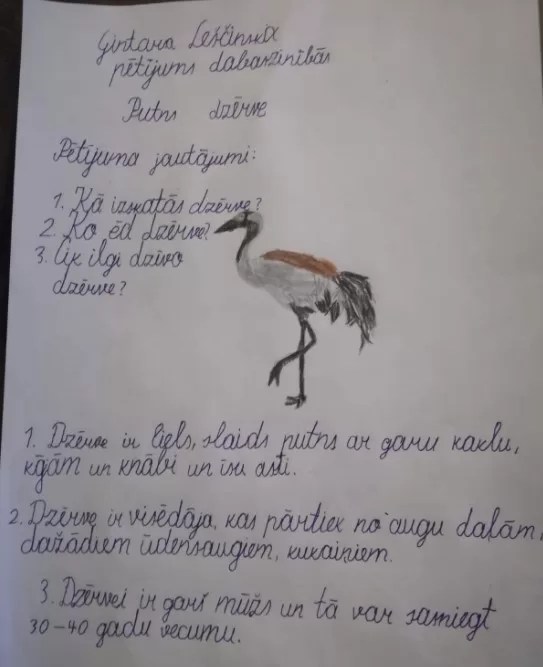 Gintara Leščinska
pētījums dabaszinībās
Putns dzērve
Pētījuma jautājumi:
1. Kā izskatās dzērve?
2. Ko ēd dzērve?
3. Cik ilgi dzīvo
dzērve?
1. Dzērve ir liels, slaids putns ar garu kaklu,
kājām un knābi un īsu asti.
2. Dzērve ir visēdāja, kas pārtiek no augu daļām,
dažādiem ūdensaugiem, kukaiņiem.
3. Dzērvei ir garš mūžs un tā var sasniegt
30-40 gadu vecumu.